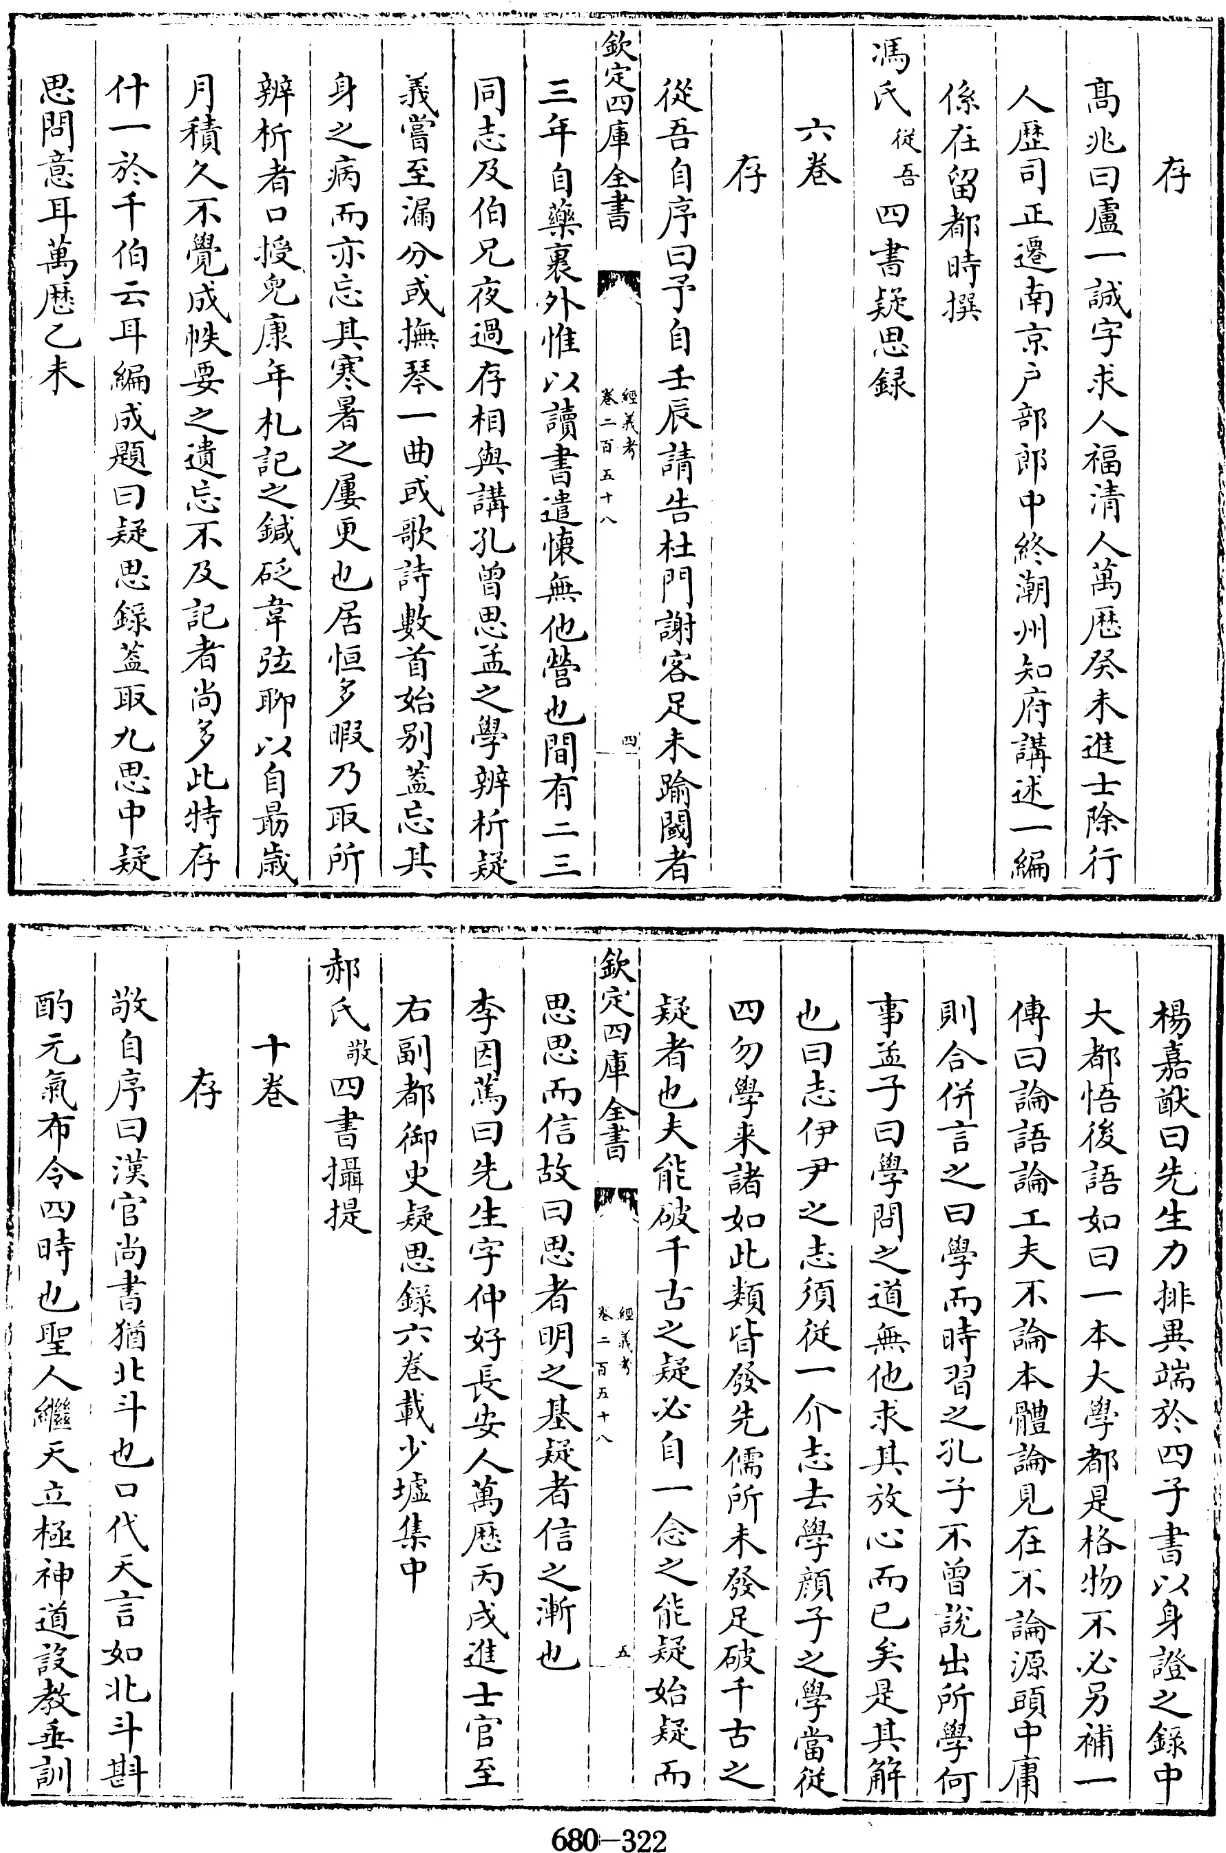 存
髙兆曰盧一誠字求人福清人萬厯癸未進士除行
人歷司正遷南京户部郎中終潮州知府講述一編
係在留都時撰
馮氏從吾四書疑思録
六卷
存
從吾自序曰予自壬辰請告杜門謝客足未踰閾者
欽定四庫全書
經義考
卷二百五十八
四
三年自藥裹外惟以讀書遣懐無他營也間有二三
同志及伯兄夜過存相與講孔曾思孟之學辨析疑
義嘗至漏分或撫琴一曲或歌詩數首始别葢忘其
身之病而亦忘其寒暑之屢更也居恒多暇乃取所
辨析者口授兒康年札記之鍼砭韋弦聊以自朂歳
月積久不覺成帙要之遺忘不及記者尚多此特存
什一於千伯云耳編成題曰疑思録葢取九思中疑
思問意耳萬厯乙未
楊嘉猷曰先生力排異端於四子書以身證之録中
大都悟後語如曰一本大學都是格物不必另補一
傳曰論語論工夫不論本體論見在不論源頭中庸
則合併言之曰學而時習之孔子不曾説出所學何
事孟子曰學問之道無他求其放心而已矣是其解
也曰志伊尹之志須從一介志去學顔子之學當從
四勿學来諸如此類皆發先儒所未發足破千古之
疑者也夫能破千古之疑必自一念之能疑始疑而
欽定四庫全書
經義考
卷二百五十八
五
思思而信故曰思者明之基疑者信之漸也
李因篤曰先生字仲好長安人萬厯丙戌進士官至
右副都御史疑思録六卷載少墟集中
郝氏敬四書攝提
十卷
存
敬自序曰漢官尚書猶北斗也口代天言如北斗斟
酌元氣布令四時也聖人繼天立極神道設教垂訓
680—322